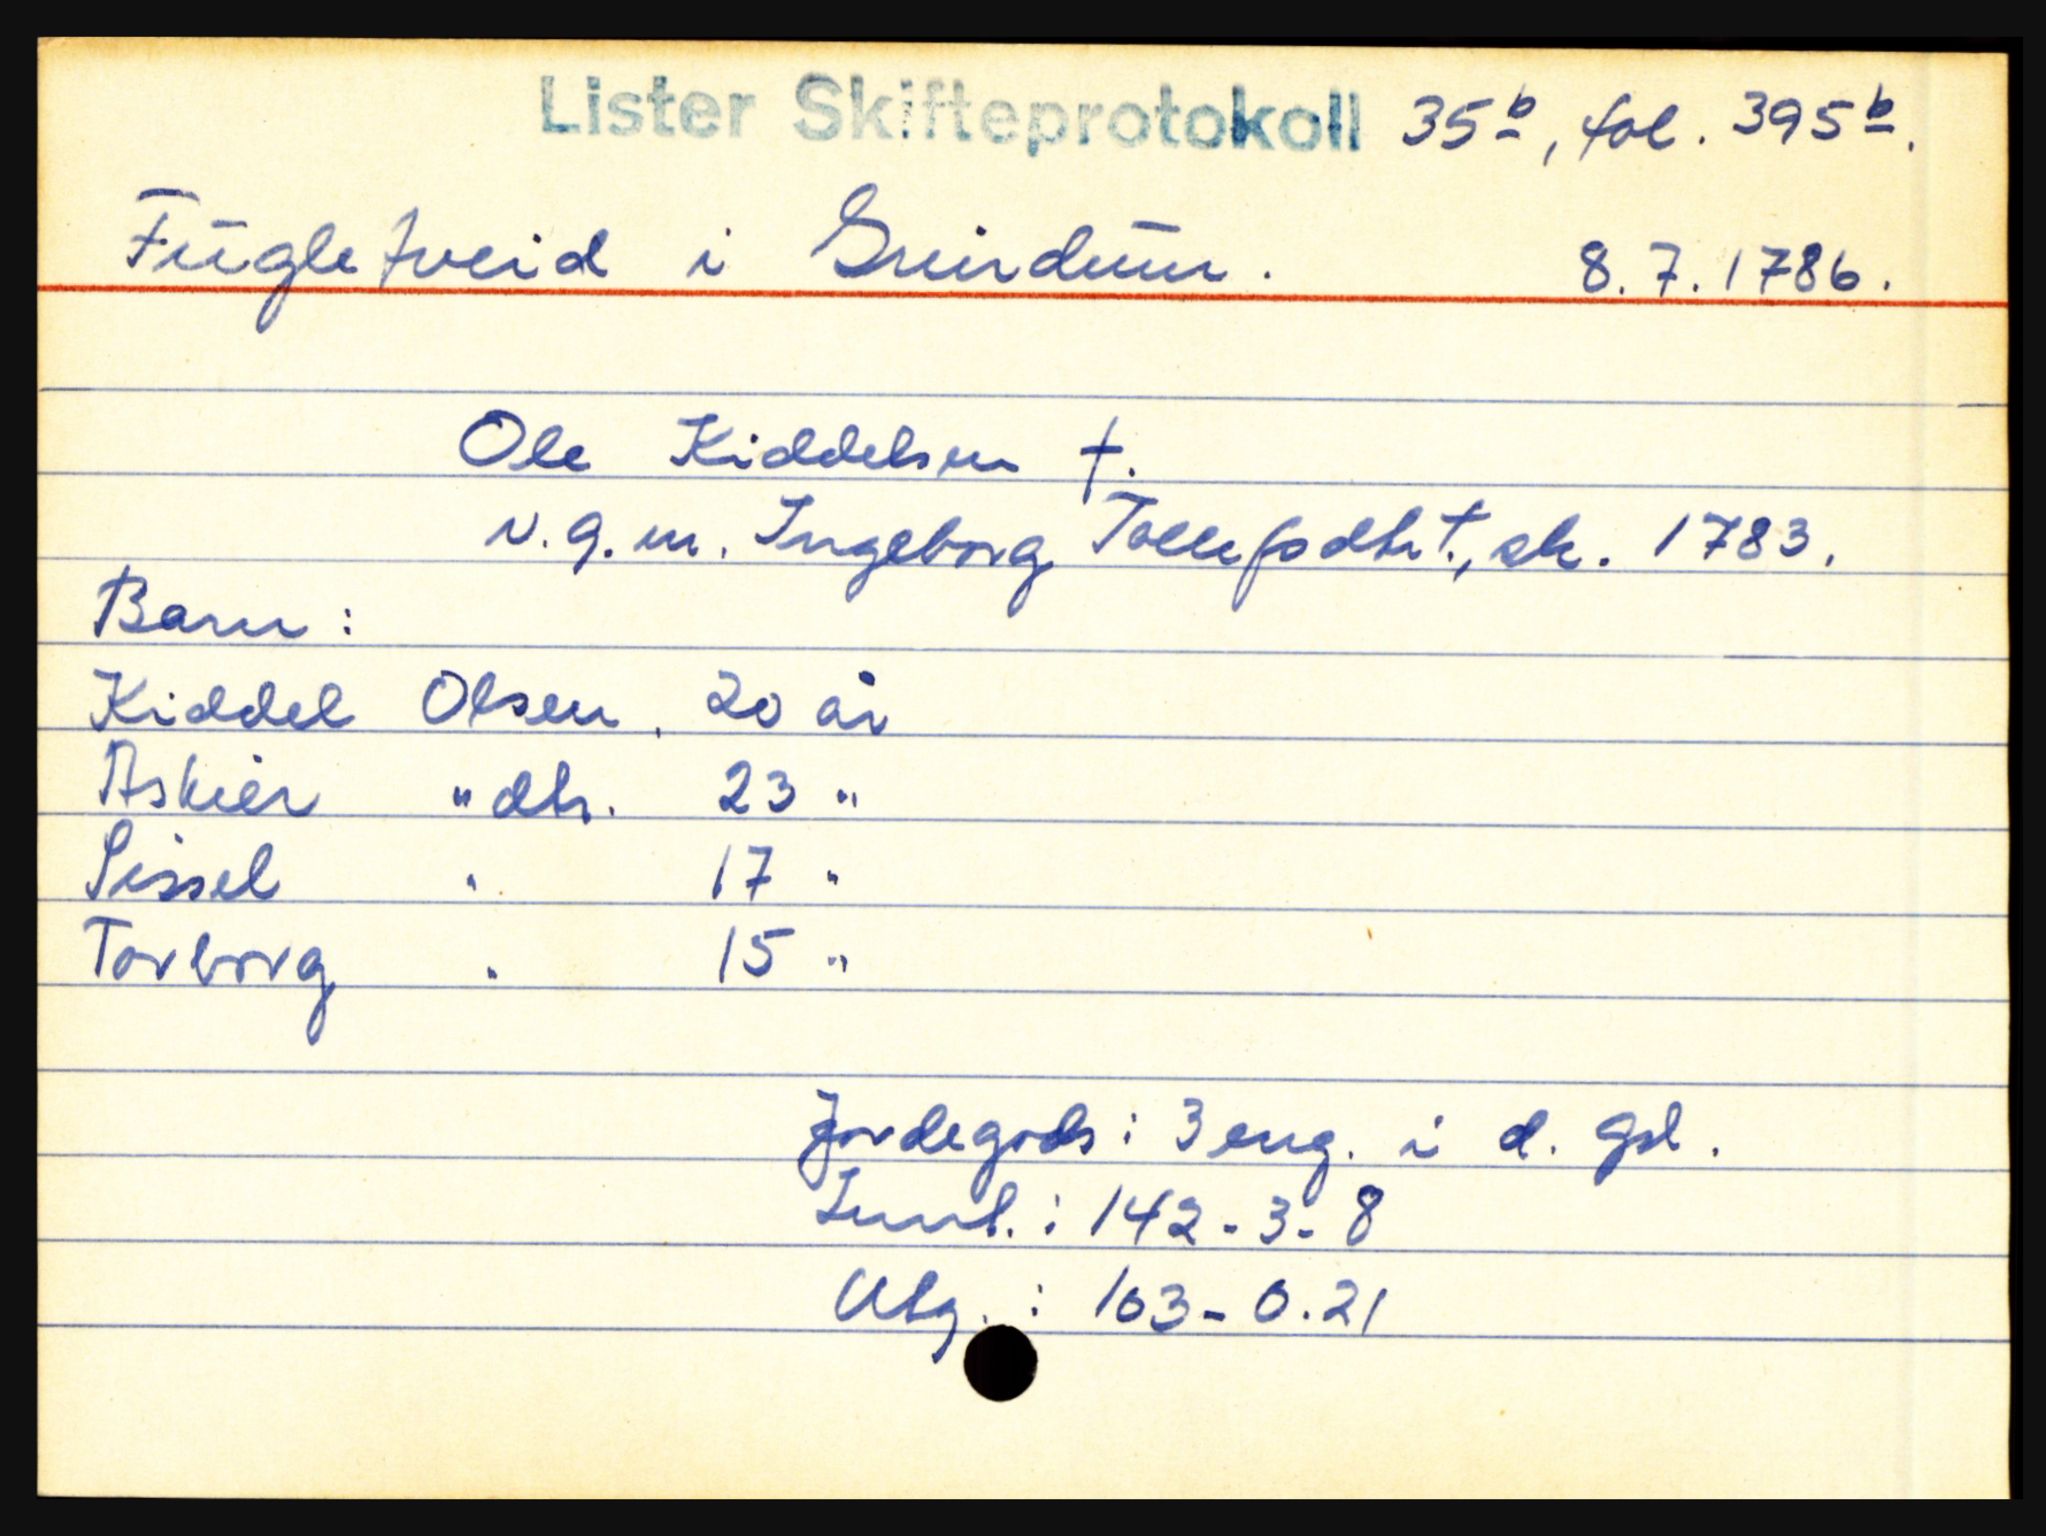 Lister Skifteprotokoll 35b, fol. 395b.
Fugletveid i Grindum. 8.7.1786.
Ole Kiddelsen †.
v. g. m. Ingeborg Tollefsdtr. †., sk. 1783.
Barn:
Kiddel Olsen, 20 år
Askier " dtr. 23 "
Sissel " 17 "
Torborg " 15 "
Jordegods: 3 eng. i d. gd.
Innt.: 142-3-8
Utg.: 103-0.21